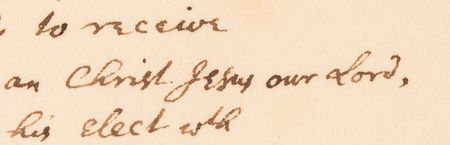 to receive
an Christ Jesus our Lord,
his elect wth